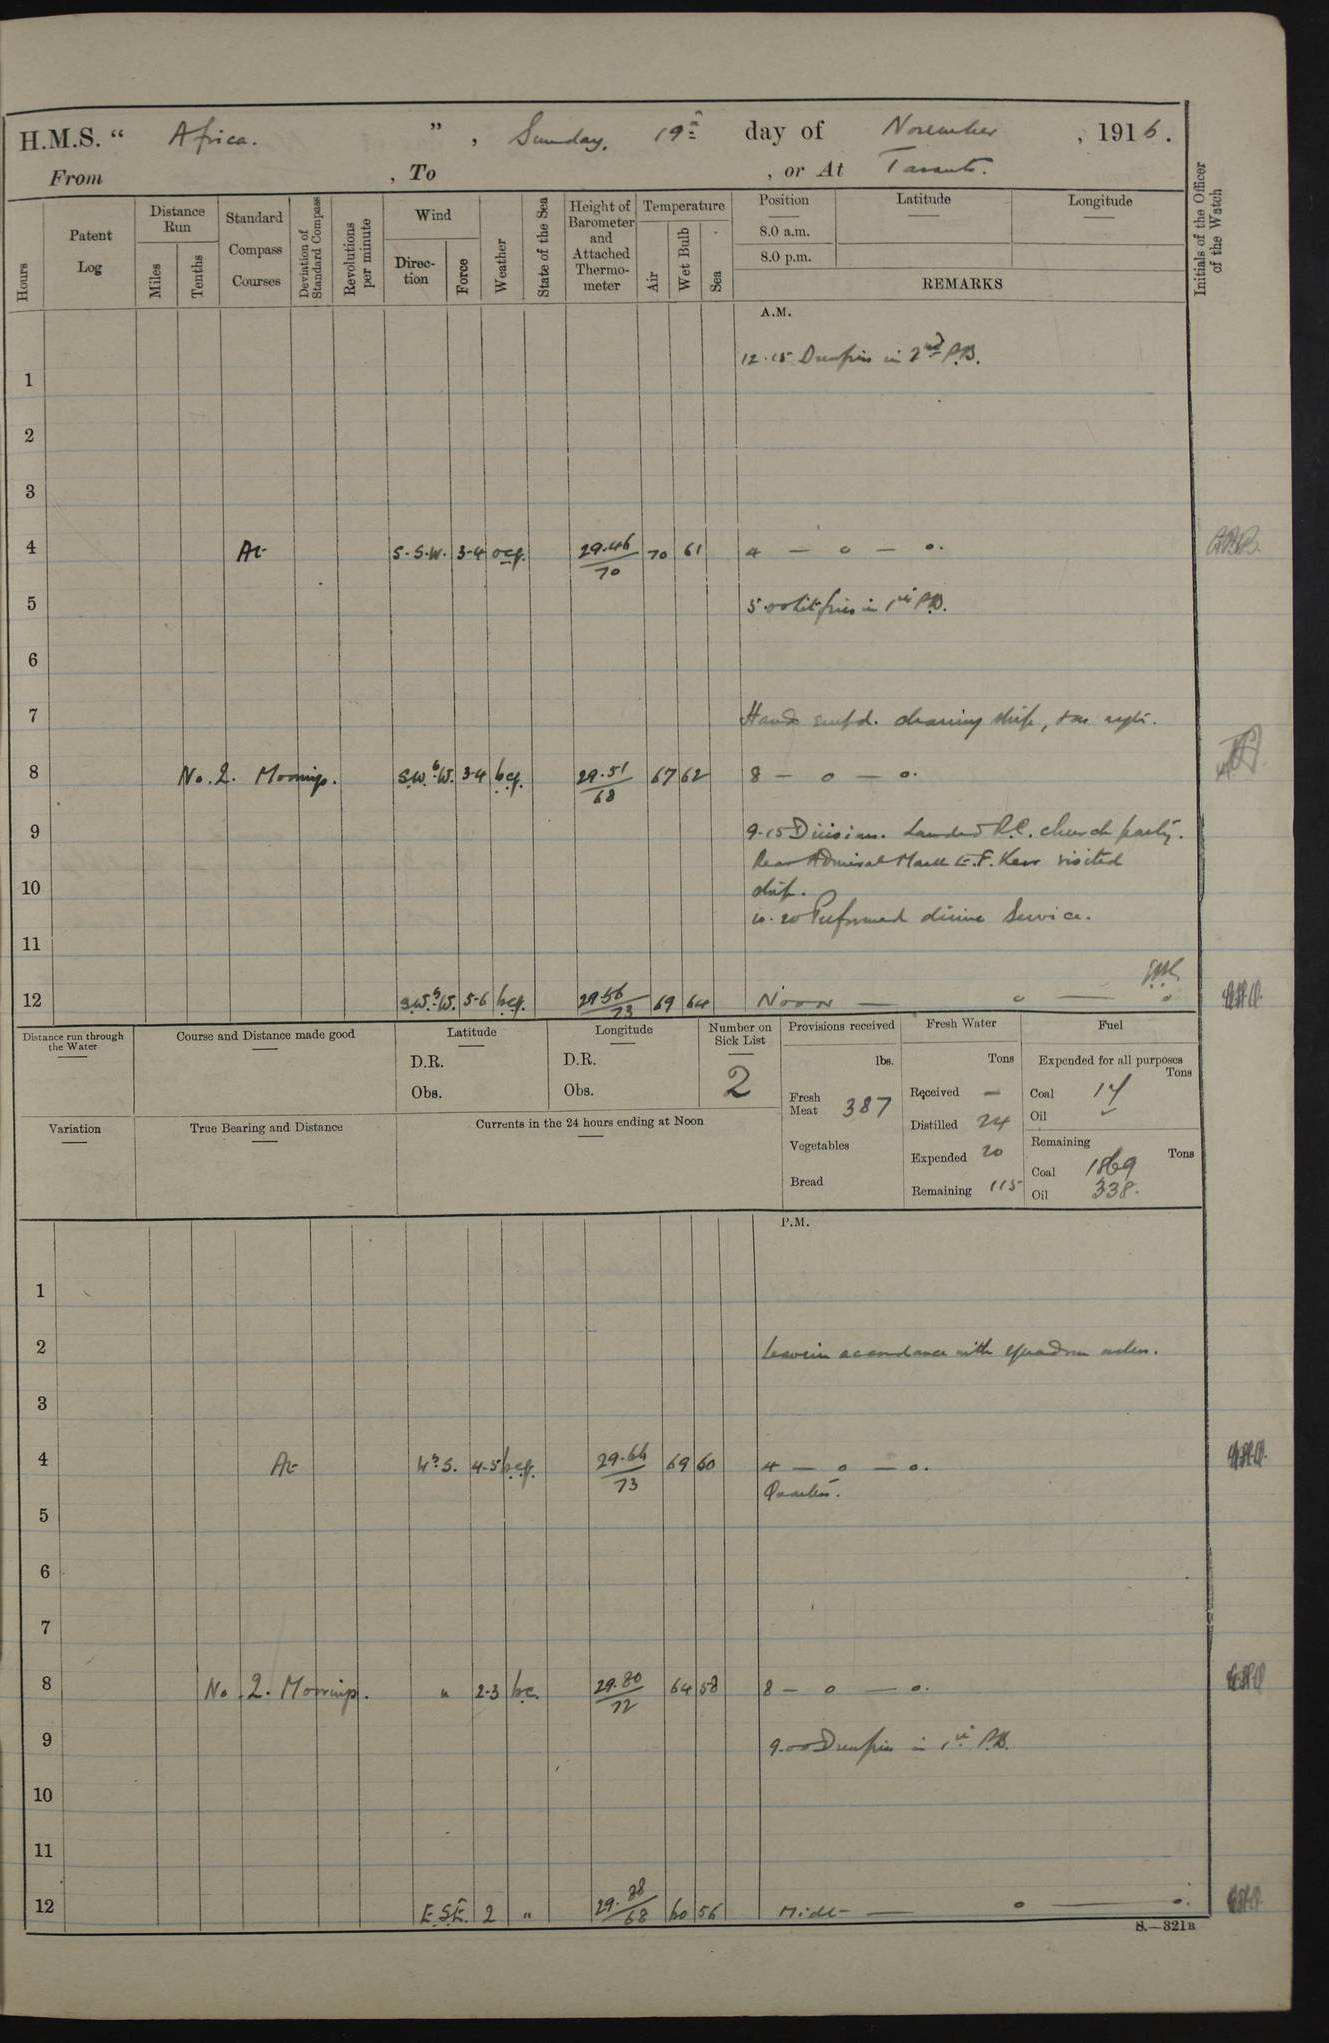 H.M.S. “ Africa. ” , Sunday, 19th day of November , 1916.
From , To , or At Taranto.
Hours
Patent Log
Distance Run
Miles
Tenths
Standard Compass Courses
Deviation of Standard Compass
Revolutions per minute
Wind
Direction
Force
Weather
State of the Sea
Height of Barometer and Attached Thermometer
Temperature
Air
Wet Bulb
Sea
Position
8.0 a.m.
8.0 p.m.
Latitude
Longitude
REMARKS
Initials of the Officer of the Watch
A.M.
1 12.15 Drew fires in 2nd P.B.
2
3
4 At S.S.W. 3-4 ocq. 29.46/70 70 61 4 — o — o.
5 5.00 Lit fires in 1st P.B.
6
7 Hands empd. cleaning ship, & as reqte.
8 No. 2. Moorings. S.W.b.W. 3-4 bcq. 29.51/68 67 62 8 — o — o.
9 9.15 Divisions. Landed R.C. church party.
Rear Admiral Mark E.F. Kerr visited
10 ship.
10.20 Performed divine Service.
11
12 S.W.b.W. 5-6 bcq. 29.56/73 69 64 Noon — o — o
Distance run through the Water
Course and Distance made good
Latitude
D.R.
Obs.
Longitude
D.R.
Obs.
Number on Sick List
2
Provisions received
lbs.
Fresh Meat 387
Vegetables
Bread
Fresh Water
Tons
Received —
Distilled 24
Expended 20
Remaining 115
Fuel
Expended for all purposes
Tons
Coal 14
Oil
Remaining
Tons
Coal 1869
Oil 338.
Variation
True Bearing and Distance
Currents in the 24 hours ending at Noon
P.M.
1
2 Leave in accordance with squadron orders.
3
4 At W.b.S. 4-5 bcq. 29.66/73 69 60 4 — o — o.
Quarters.
5
6
7
8 No. 2. Moorings. " 2-3 bc. 29.80/72 64 58 8 — o — o.
9 9.00 Drew fires in 1st P.B.
10
11
12 E.S.E. 2 " 29.88/68 60 56 Midt — o — o.
S.—321B